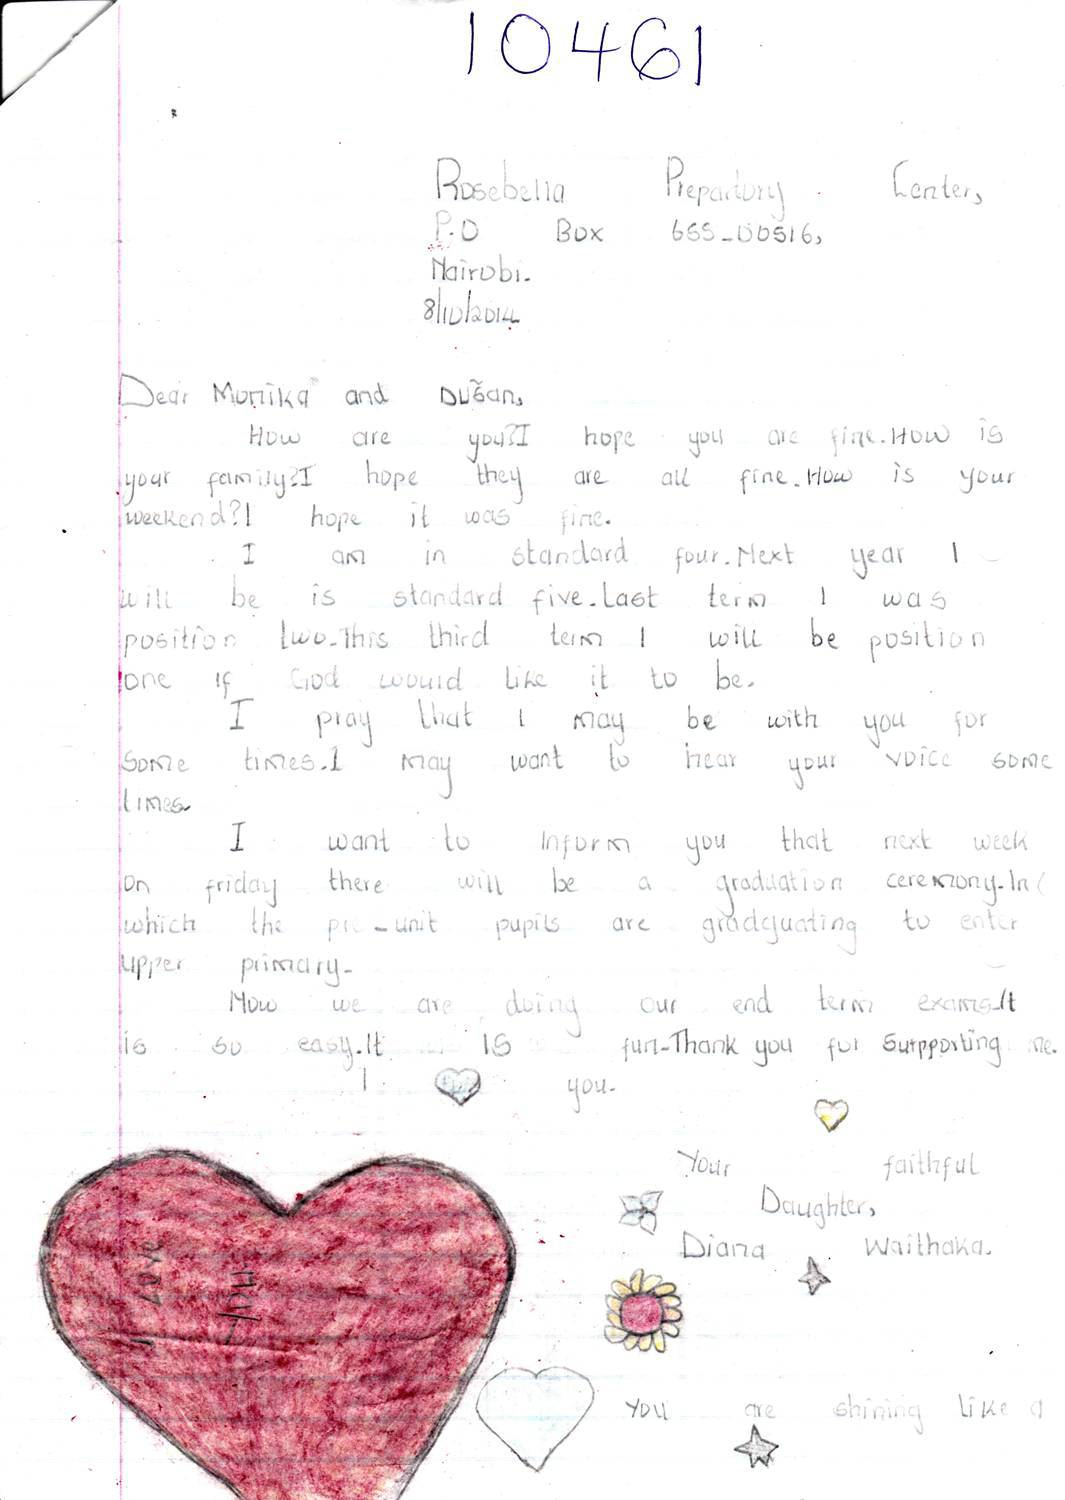 10461
Rosebella Preparatory Center,
P.O Box 655-00516,
Nairobi.
8/10/2014
Dear Monika and Dušan,
How are you?I hope you are fine.How is
your family?I hope they are all fine.How is your
weekend?I hope it was fine.
I am in standard four.Next year I
will be is standard five.Last term I was
position two.This third term I will be position
one if God would like it to be.
I pray that I may be with you for
some times.I may want to hear your voice some
times.
I want to inform you that next week
on friday there will be a graduation ceremony.In
which the pre-unit pupils are gradguating to enter
upper primary.
Now we are doing our end term exams.It
is so easy.It is fun.Thank you for surpporting me.
I you.
Your faithful
Daughter,
Diana Waithaka.
I Love
you
You are shining like a